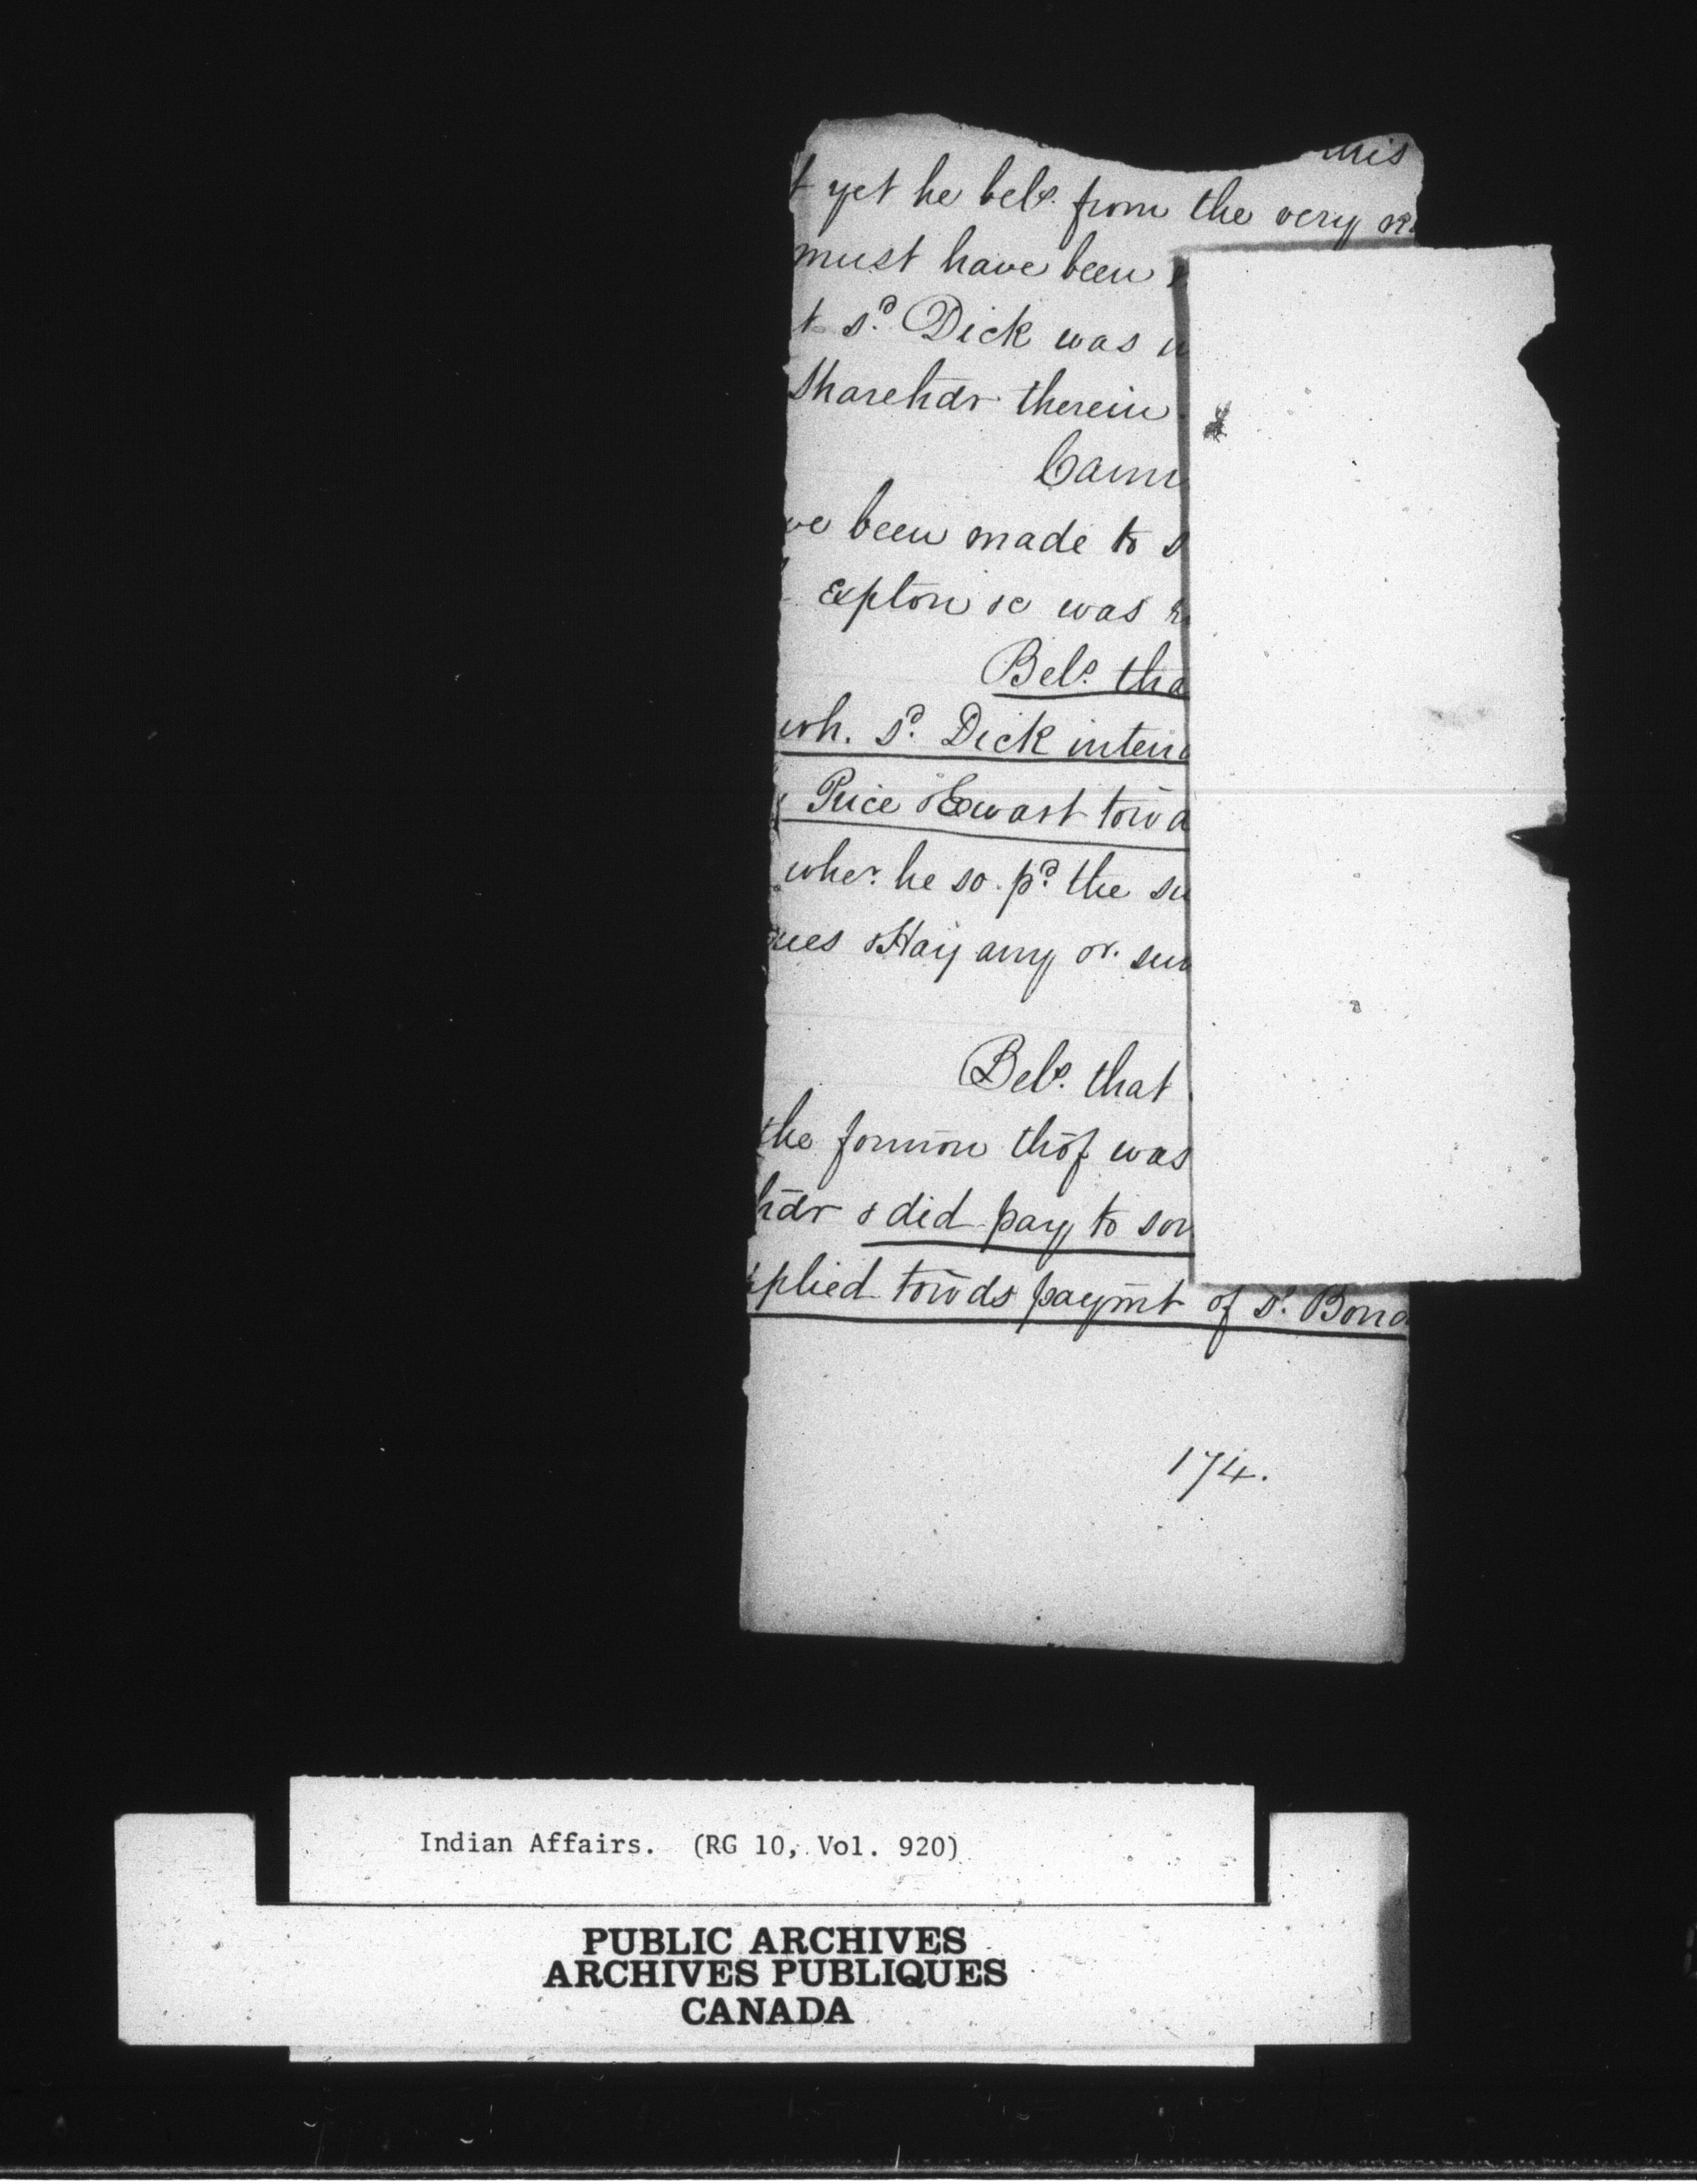 this
t yet he bels. from the very
must have been
t sd. Dick was
Sharehdr therein
ve been made to s
expton &c was
Bels. tha
wh. sd. Dick inten
Price & Ewart towa
wher. he so pd. the su
ues & Hay any or. su
Bels. that
the formon thof was
hdr & did pay to so
pplied towds paymt of sd. Bond
174.
Indian Affairs. (RG 10, Vol. 920)
PUBLIC ARCHIVES
ARCHIVES PUBLIQUES
CANADA